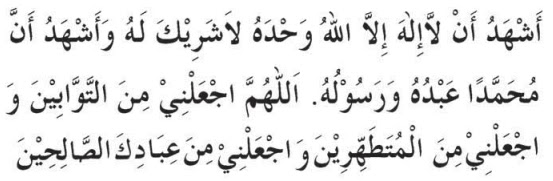 أَشْهَدُ أَنْ لَّاإِلٰهَ إِلَّا اللهُ وَحْدَهُ لاَشَرِيْكَ لَهُ وَأَشْهَدُ أَنَّ
مُحَمَّدًا عَبْدُهُ وَرَسُوْلُهُ. اَللّٰهُمَّ اجْعَلْنِيْ مِنَ التَّوَّابِيْنَ وَ
اجْعَلْنِيْ مِنَ الْمُتَطَهِّرِيْنَ وَاجْعَلْنِيْ مِنَ عِبَادِكَ الصَّالِحِيْنَ